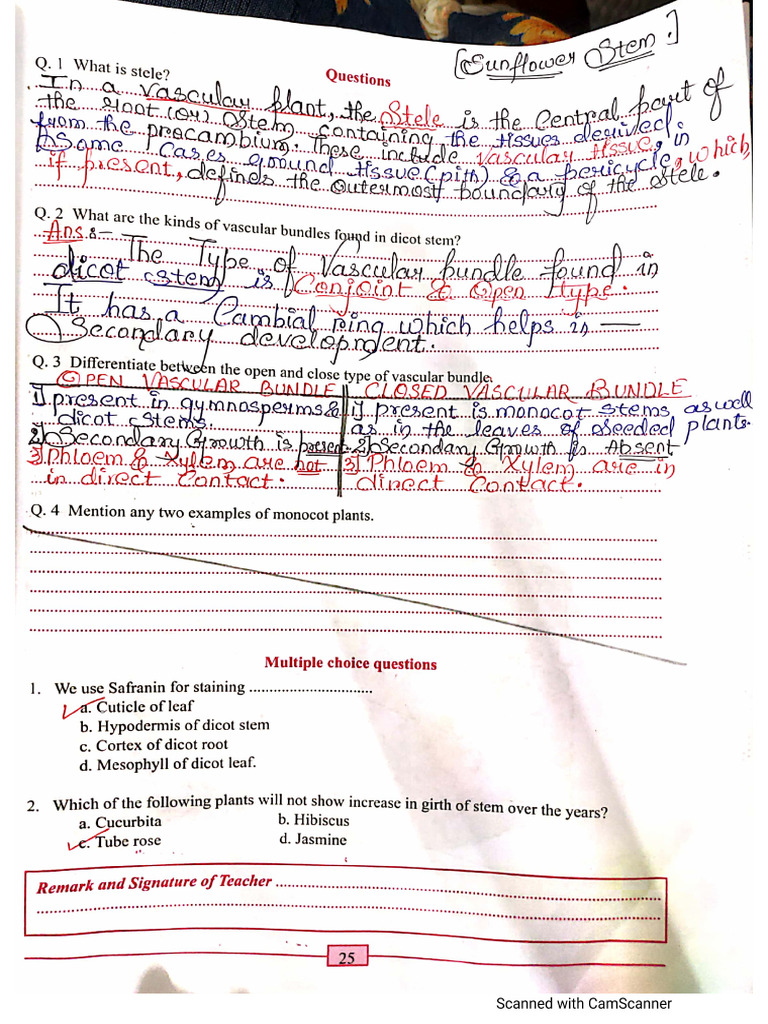 [Sunflower Stem.]
Questions
Q. 1 What is stele?
In a vascular plant, the Stele is the Central part of
the root (or) Stem containing the tissues derived
from the procambium. These include vascular tissue, in
Some Cases ground tissue (pith) & a pericycle, which,
if present, defines the outermost boundary of the stele.
Q. 2 What are the kinds of vascular bundles found in dicot stem?
Ans :-
The Type of Vascular bundle found in
dicot stem is Conjoint & Open type.
It has a Cambial ring which helps in —
Secondary development.
Q. 3 Differentiate between the open and close type of vascular bundle.
OPEN VASCULAR BUNDLE | CLOSED VASCULAR BUNDLE
1) present in gymnosperms & | 1) present is monocot stems as well
dicot stems. | as in the leaves of seeded plants.
2) Secondary Growth is present | 2) Secondary Growth is Absent
3) Phloem & Xylem are not | 3) Phloem & Xylem are in
in direct Contact. | direct Contact.
Q. 4 Mention any two examples of monocot plants.
Multiple choice questions
1. We use Safranin for staining ..............................
a. Cuticle of leaf
b. Hypodermis of dicot stem
c. Cortex of dicot root
d. Mesophyll of dicot leaf.
2. Which of the following plants will not show increase in girth of stem over the years?
a. Cucurbita b. Hibiscus
c. Tube rose d. Jasmine
Remark and Signature of Teacher
25
Scanned with CamScanner